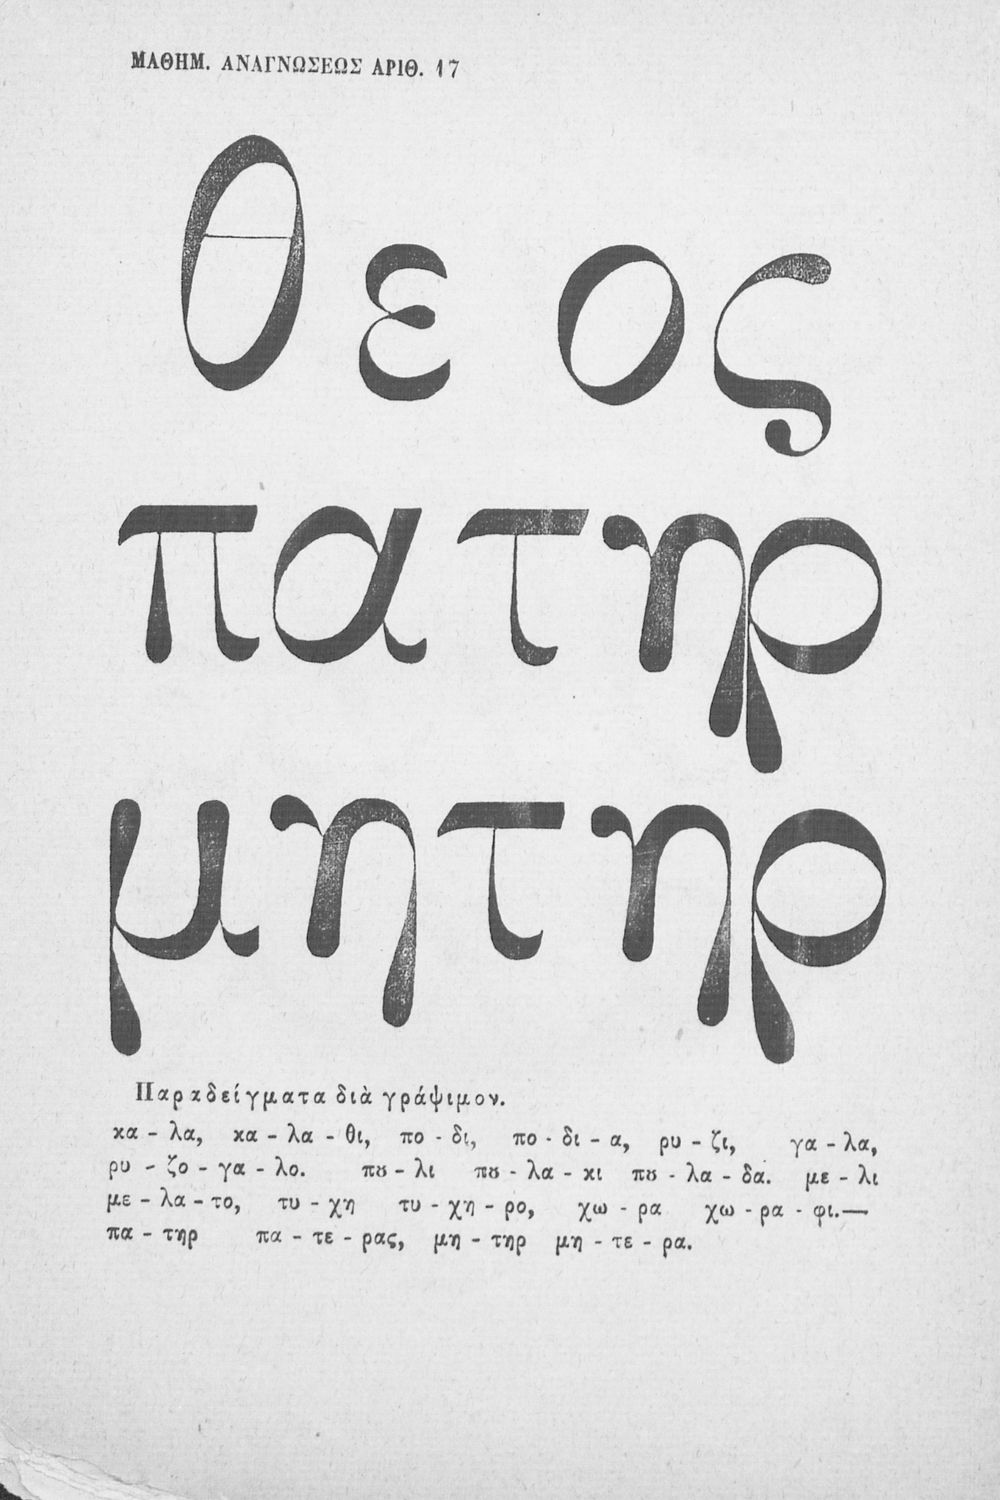 ΜΑΘΗΜ. ΑΝΑΓΝΩΣΕΩΣ ΑΡΙΘ. 17
θε ος
πατηρ
μητηρ
Παραδείγματα διὰ γράψιμον.
κα - λα, κα - λα - θι, πο - δι, πο - δι - α, ρυ - ζι, γα - λα,
ρυ - ζο - γα - λο. πȣ - λι πȣ - λα - κι πȣ - λα - δα. με - λι
με - λα - το, τυ - χη τυ - χη - ρο, χω - ρα χω - ρα - φι.—
πα - τηρ πα - τε - ρας, μη - τηρ μη - τε - ρα.